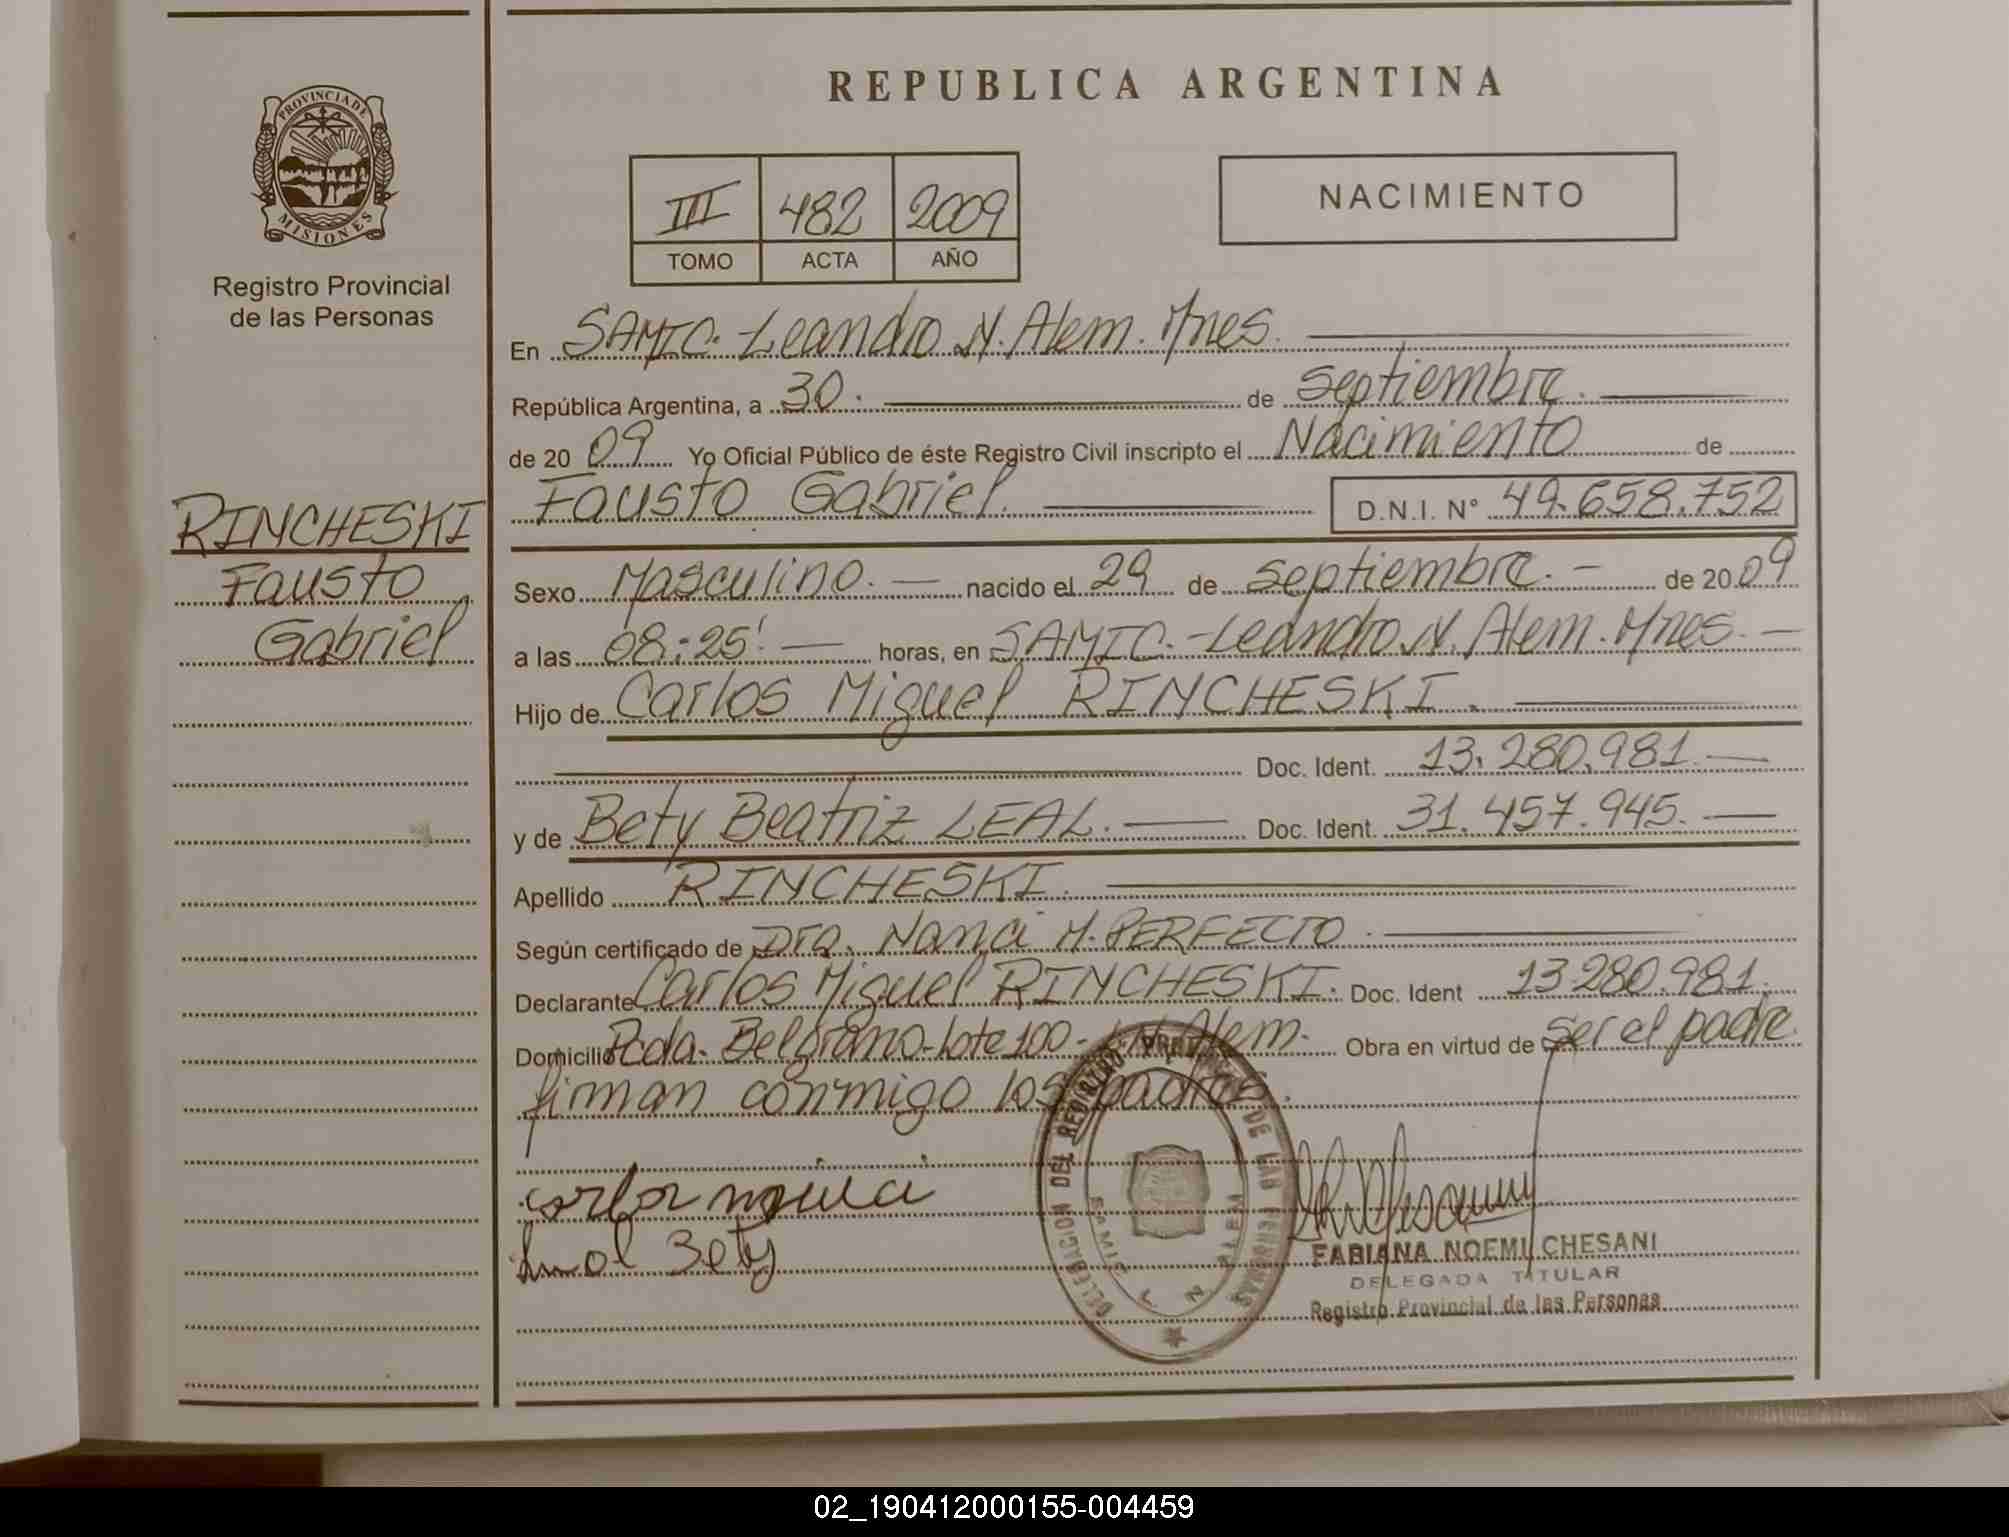 REPUBLICA ARGENTINA
PROVINCIA DE
MISIONES
Registro Provincial
de las Personas
III 482 2009
TOMO ACTA AÑO
NACIMIENTO
RINCHESKI
Fausto
Gabriel
En SAMIC. Leandro N. Alem. Mnes.
República Argentina, a 30. de Septiembre.
de 20 09 Yo Oficial Público de éste Registro Civil inscripto el Nacimiento de
Fausto Gabriel. D.N.I. Nº 49.658.752
Sexo Masculino. nacido el 29 de Septiembre. de 20 09
a las 08:25' horas, en SAMIC. - Leandro N. Alem. Mnes.
Hijo de Carlos Miguel RINCHESKI.
Doc. Ident. 13.280.981.
y de Bety Beatriz LEAL. Doc. Ident. 31.457.945.
Apellido RINCHESKI.
Según certificado de Dra. Nanci M. PERFECTO.
Declarante Carlos Miguel RINCHESKI. Doc. Ident 13.280.981.
Domicilio Pcda. Belgrano - Lote 100 - L.N. Alem. Obra en virtud de Ser el padre.
firman conmigo los padres.
DELEGACION DEL REGISTRO PROVINCIAL DE LAS PERSONAS
L. N. ALEM
Bety
FABIANA NOEMI CHESANI
DELEGADA TITULAR
Registro Provincial de las Personas
02_190412000155-004459